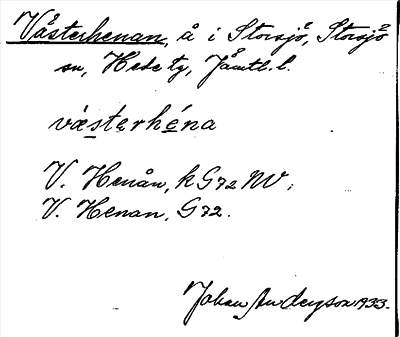 Västerhenan, å i Storsjö, Storsjö
sn, Hede tg, Jämtl. l.
västerhéna
V. Henån, k G72 NV;
V. Henan, G72.
Johan Anderson 1933.